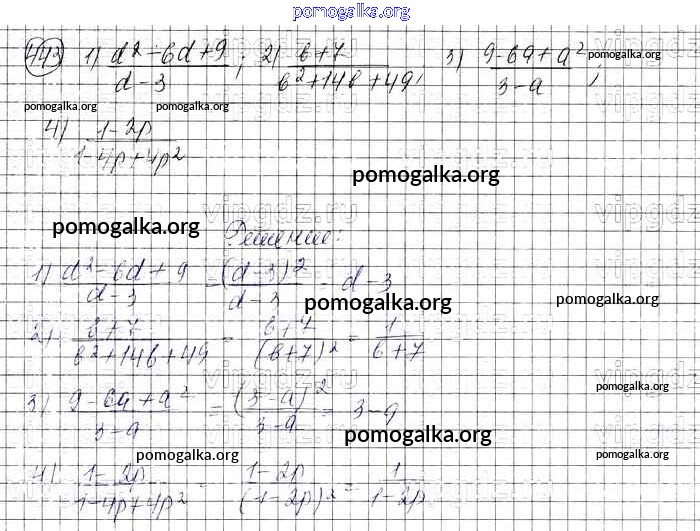 pomogalka.org
443 1) (d² - 6d + 9)/(d - 3); 2) (b + 7)/(b² + 14b + 49); 3) (9 - 6a + a²)/(3 - a); pomogalka.org
pomogalka.org pomogalka.org
4) (1 - 2p)/(1 - 4p + 4p²)
pomogalka.org
vipgdz.ru
pomogalka.org
Решение:
1) (d² - 6d + 9)/(d - 3) = (d - 3)²/(d - 3) = d - 3
pomogalka.org pomogalka.org
2) (b + 7)/(b² + 14b + 49) = (b + 7)/(b + 7)² = 1/(b + 7)
vipgdz.ru
pomogalka.org
3) (9 - 6a + a²)/(3 - a) = (3 - a)²/(3 - a) = 3 - a
pomogalka.org
pomogalka.org pomogalka.org
4) (1 - 2p)/(1 - 4p + 4p²) = (1 - 2p)/(1 - 2p)² = 1/(1 - 2p)
vipgdz.ru